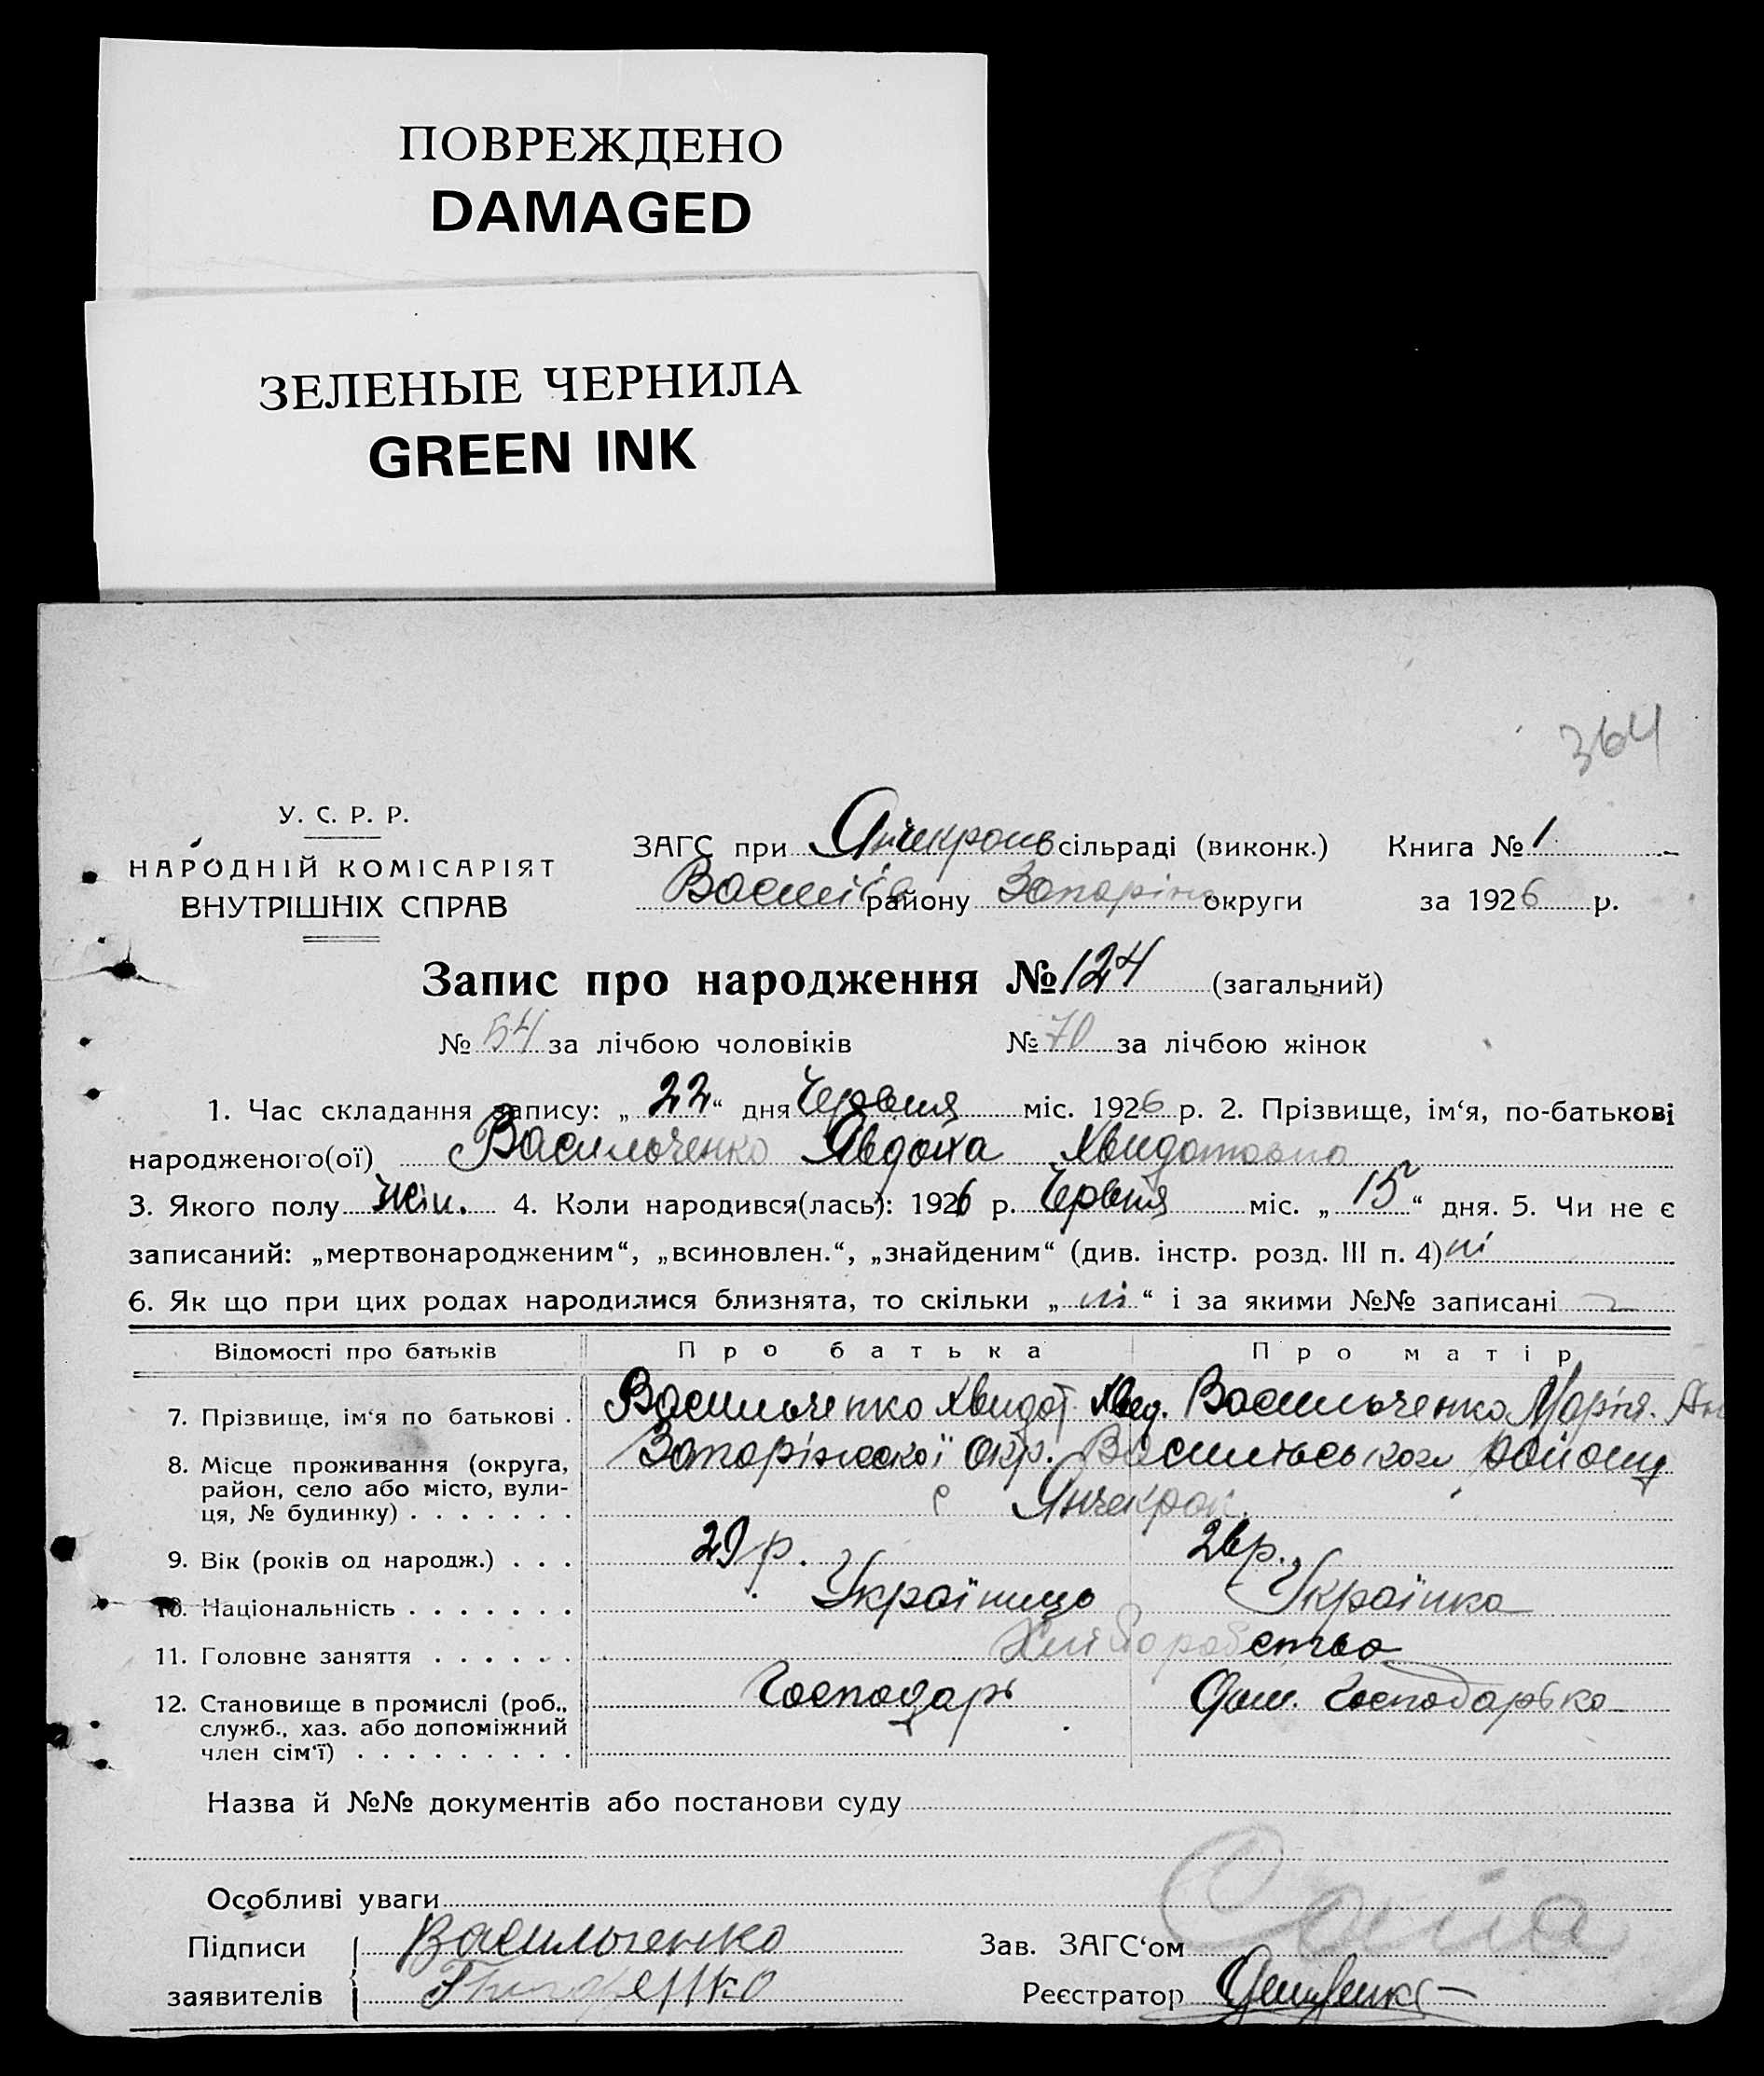 ПОВРЕЖДЕНО
DAMAGED
ЗЕЛЕНЫЕ ЧЕРНИЛА
GREEN INK
364
У. С. Р. Р.
НАРОДНІЙ КОМІСАРІЯТ
ВНУТРІШНІХ СПРАВ
ЗАГС при Янчекроків сільраді (виконк.) Книга № 1
Василів району Запоріж округи за 1926 р.
Запис про народження № 124 (загальний)
№ 54 за лічбою чоловіків № 70 за лічбою жінок
1. Час складання запису: „22“ дня Червня міс. 1926 р. 2. Прізвище, ім‘я, по-батькові
народженого(ої) Васильченко Явдоха Хвидотовна
3. Якого полу жін. 4. Коли народився(лась): 1926 р. Червня міс. „15“ дня. 5. Чи не є
записаний: „мертвонародженим“, „всиновлен.“, „знайденим“ (див. інстр. розд. III п. 4) ні
6. Як що при цих родах народилися близнята, то скільки „ні“ і за якими №№ записані
Відомості про батьків Про батька Про матір
7. Прізвище, ім‘я по батькові . Васильченко Хвидот Хвед. Васильченко Марія.
8. Місце проживання (округа, Запоріжської Окр. Василівського Району
район, село або місто, вули-
ця, № будинку) . . . . . . . с Янчекрак.
9. Вік (років од народж.) . . . 29 р. 26 р.
10. Національність . . . . . . . Українець Українка
11. Головне заняття . . . . . . Хліборобство
12. Становище в промислі (роб., Господарь Дом. Господарька
служб., хаз. або допоміжний
член сім‘ї) . . . . . . . . .
Назва й №№ документів або постанови суду
Особливі уваги
Підписи Васильченко Зав. ЗАГС‘ом
заявителів Реєстратор